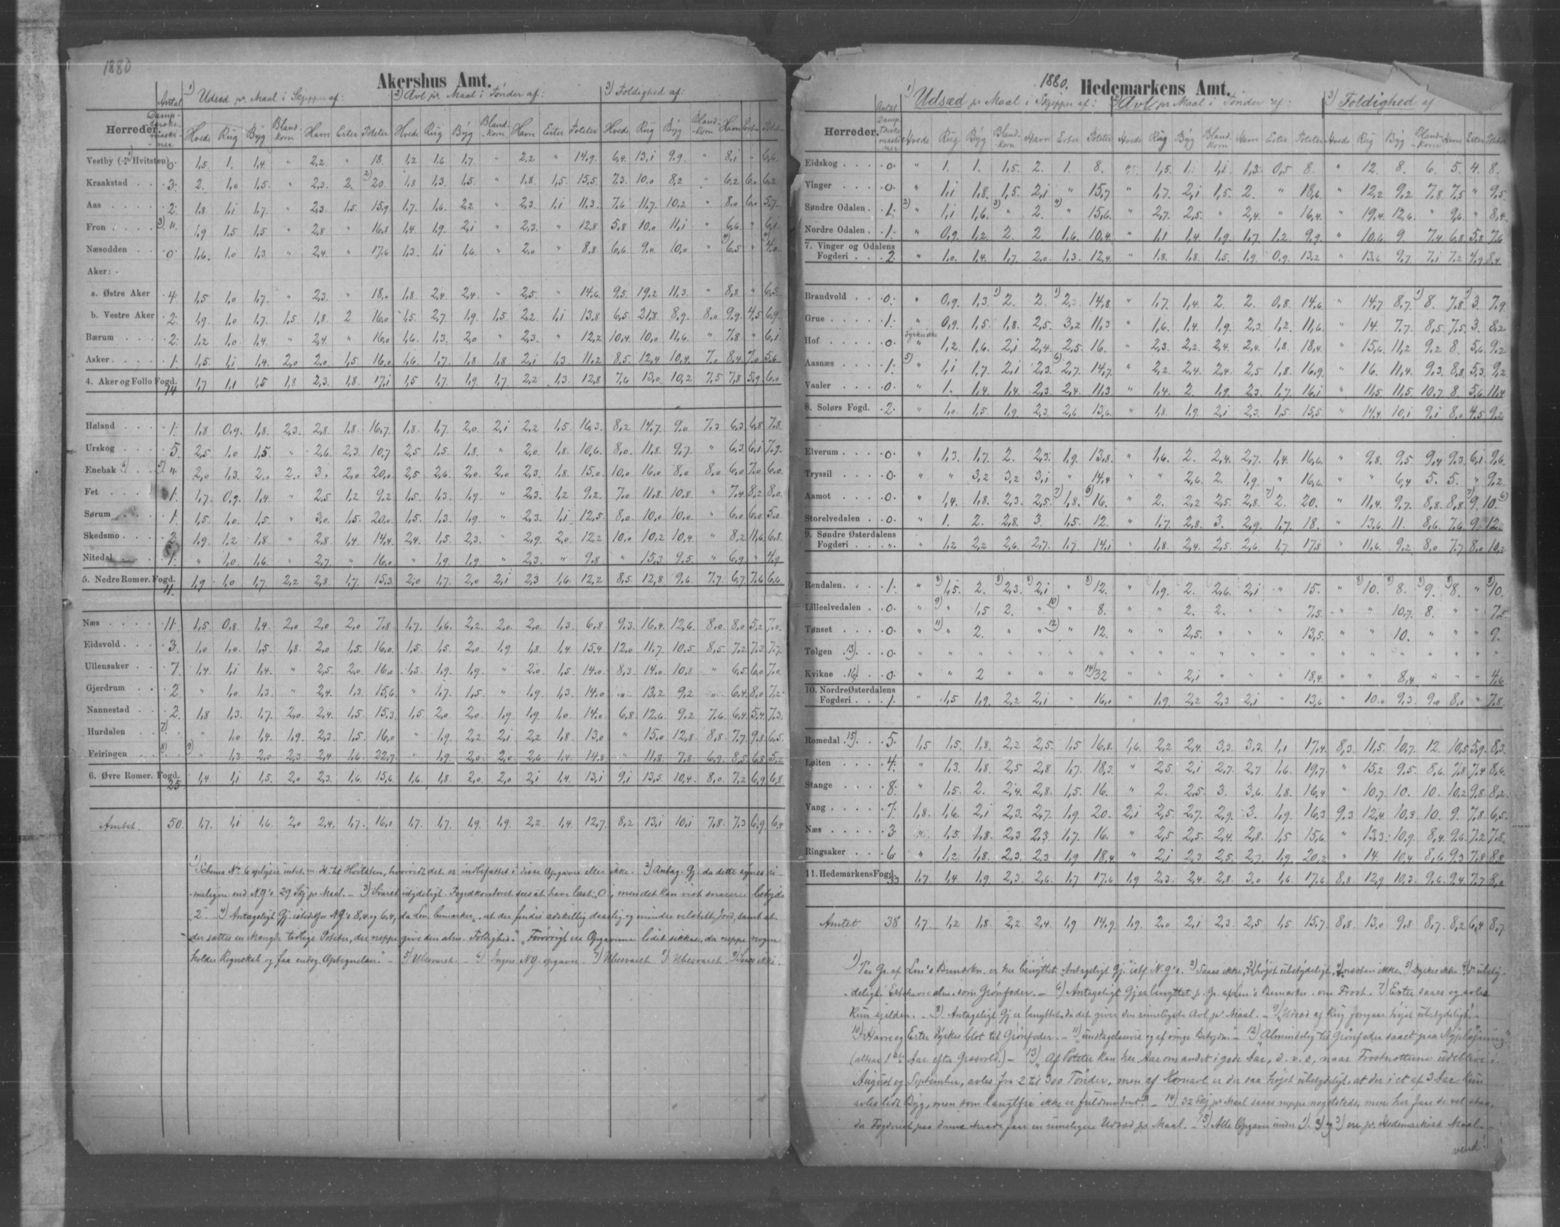 1880
Akershus Amt.
Herreder. Antal Damptærskemaskiner 1) Udsæd pr. Maal i Skjæpper af: 2) Avl pr Maal i Tønder af: 3) Foldighed af:
Hvede Rug Byg Blandkorn Havre Erter Poteter Hvede Rug Byg Blandkorn Havre Erter Poteter Hvede Rug Byg Blandkorn Havre Erter Poteter
Vestby (÷ Hvitsten) 0 1,5 1, 1,4 " 2,2 " 18 1,2 1,6 1,7 " 2,2 " 14,9 6,4 13,1 9,9 " 8,1 " 6,6
Kraakstad 3 2, 1,0 1,5 " 2,3 2, 20 1,8 1,3 1,5 " 1,8 1,5 15,5 7,3 10,0 8,2 " 6,2 6,0 6,2
Aas 2 1,8 1,1 1,7 " 2,3 1,5 15,9 1,7 1,6 2,2 " 2,3 1,1 11,3 7,6 11,7 10,2 " 8,0 6,0 5,7
Fron 3) " 1,9 1,5 1,5 " 2,8 " 16,8 1,4 1,9 2,1 " 2,3 " 12,8 5,8 10,0 11,1 " 6,6 " 6,1
Næsodden 0 1,6 1,0 1,3 " 2,4 " 17,6 1,3 1,1 1,6 " 2,0 " 8,8 6,6 9,0 10,0 " 6,5 " 4,0
Aker:
a. Østre Aker 4 1,5 1,0 1,7 " 2,3 " 18,0 1,8 2,4 2,4 " 2,5 " 14,6 9,5 19,2 11,3 " 8,8 " 6,5
b. Vestre Aker 2 1,9 1,0 1,7 1,5 1,8 2 16,0 1,5 2,7 1,9 1,5 2,2 1,1 13,8 6,5 21,8 8,9 8,0 9,9 4,5 6,9
Bærum 2 1,2 1,0 1,4 " 2,4 " 16,0 1,6 1,3 2,0 " 2,3 " 12,2 10,4 10,0 11,6 " 7,8 " 6,1
Asker 1 1,5 1,1 1,4 2,0 2,0 1,5 16,0 1,6 1,7 1,8 1,8 2,1 1,3 11,2 8,5 12,4 10,4 7,0 8,4 7,0 5,6
4. Aker og Follo Fogd. 14 1,7 1,1 1,5 1,8 2,3 1,8 17,1 1,5 1,7 1,9 1,7 2,2 1,3 12,8 7,6 13,0 10,2 7,5 7,8 5,9 6,0
Høland 1 1,8 0,9 1,8 2,3 2,8 1,8 16,7 1,8 1,7 2,0 2,1 2,2 1,5 16,3 8,2 14,7 9,0 7,3 6,3 6,8 7,8
Urskog 5 2,5 1,0 1,5 " 2,6 2,3 10,7 2,5 1,5 1,8 " 2,0 1,8 10,6 8,0 11,8 9,7 " 6,3 6,1 7,9
Enebak " 2,0 1,3 2,0 2, 3, 2,0 20,0 2,5 2,6 2,0 2,0 2,3 1,8 15,0 10,0 16,0 8,0 8,0 6,0 7,0 6,0
Fet 1 1,7 0,9 1,4 " 2,5 1,2 9,2 1,5 1,3 1,9 " 2,3 1,2 9,2 7,0 11,8 10,8 " 7,4 8,2 8,0
Sørum 1 1,5 1,0 1,5 " 3,0 1,5 20,0 1,5 1,3 1,9 " 2,3 1,1 12,5 8,0 10,0 10,0 " 6,0 6,0 5,0
Skedsmo 2 1,9 1,2 1,8 " 2,8 1,4 14,4 2,4 1,5 2,3 " 2,9 2,0 12,2 10,0 10,2 10,4 " 8,2 11,6 6,8
Nitedal 1 " 1,0 1,6 " 2,7 " 16,0 " 1,9 1,9 " 2,3 " 9,8 " 15,3 9,5 " 6,9 " 4,9
5. Nedre Romer. Fogd. 11 1,9 1,0 1,7 2,2 2,8 1,7 15,3 2,0 1,7 2,0 2,1 2,3 1,6 12,2 8,5 12,8 9,6 7,7 6,7 7,6 6,6
Næs 11 1,5 0,8 1,4 2,0 2,0 2,0 7,8 1,7 1,6 2,2 2,0 2,0 1,3 6,8 9,3 16,4 12,6 8,0 8,0 5,2 7,0
Eidsvold 3 1,0 1,0 1,5 1,8 2,0 1,5 16,0 1,5 1,5 2,0 1,9 1,8 1,4 15,4 12,0 11,7 10,5 8,5 7,2 7,3 7,7
Ullensaker 7 1,4 1,1 1,4 " 2,5 2,0 16,0 1,5 1,9 1,9 " 2,0 1,5 14,0 8,3 14,0 10,8 " 6,5 6,0 7,0
Gjerdrum 2 " 1,0 1,3 " 2,4 1,3 15,6 " 1,7 1,5 " 1,9 1,3 14,0 " 13,2 9,2 " 6,4 8,0 7,2
Nannestad 2 1,8 1,3 1,7 2,0 2,4 1,5 15,3 1,5 2,0 2,0 1,9 1,9 1,0 14,0 6,8 12,6 9,2 7,6 6,4 5,4 7,3
Hurdalen 7) " 1,0 1,4 1,9 2,3 1,5 16,0 " 1,9 2,2 2,1 2,2 1,8 13,0 " 15,0 12,8 8,8 7,7 9,8 6,5
Feiringen 8) " 1,3 2,0 2,3 2,4 1,6 22,7 " 1,9 2,0 2,0 2,6 1,4 14,8 " 11,8 7,8 6,9 8,5 6,5 5,2
6. Øvre Romer. Fogd. 25 1,4 1,1 1,5 2,0 2,3 1,6 15,6 1,6 1,8 2,0 2,0 2,1 1,4 13,1 9,1 13,5 10,4 8,0 7,2 6,9 6,8
Amtet 50 1,7 1,1 1,6 2,0 2,4 1,7 16,0 1,7 1,7 1,9 1,9 2,2 1,4 12,7 8,2 13,1 10,1 7,8 7,3 6,9 6,4
eller ikke. 2) Antag. Gj. da dette synes ri-
meligere end N.G's 29 Skj pr Maal. 3) Svaret utydeligt. Fogedkontoret sees at have læst 0, men det kan med snarere betyde
2. 4) Antageligt Gj. istedetfor NG's 8,4 og 6,4, da Len. bemærker, "at der findes adskillig daarlig og mindre veldelt Jord, samt at
der sættes en Mængde tidlige Poteter, der neppe give den alm. Foldighed." "Forøvrigt ere Opgaverne lidet sikkre, da neppe nogen
holder Regnskab og faa endog Optegnelser." 5) Ubesvaret. 6) Ingen N.G. opgave. 7) Ubesvaret 8) Ubesvaret
1880.
Hedemarkens Amt.
Herreder. Antal Damptærskemaskiner 1) Udsæd pr Maal i Skjæpper af: 2) Avl pr Maal i Tønder af: 3) Foldighed af
Hvede Rug Byg Blandkorn Havre Erter Poteter Hvede Rug Byg Blandkorn Havre Erter Poteter Hvede Rug Byg Blandkorn Havre Erter Poteter
Eidskog 0 " 1. 1. 1,5 2. 1. 8. " 1,5 1. 1,1 1,3 0,5 8. " 12. 8. 6. 5. 4. 8.
Vinger 0 " 1,1 1,8 1,5 2,1 " 15,7 " 1,7 2,1 1,5 2. " 18,6 " 12,2 9,2 7,8 7,5 " 9,5
Søndre Odalen 1 " 1,1 1,6 " 2. " 15,6 " 2,7 2,5 " 2,4 " 16,4 " 19,4 12,6 " 9,6 " 8,4
Nordre Odalen 1 " 0,9 1,2 2. 2. 1,6 10,4 " 1,1 1,4 1,9 1,7 1,2 9,9 " 10,6 9. 7,4 6,8 5,8 7,6
7. Vinger og Odalens Fogderi 2 " 1,0 1,4 1,7 2,0 1,3 12,4 " 1,8 1,8 1,5 1,9 0,9 13,2 " 13,6 9,7 7,1 7,2 4,9 8,4
Brandvold 0 " 0,9 1,3 2. 2. 2. 14,8 " 1,7 1,4 2. 2. 0,8 14,6 " 14,7 8,7 8. 7,8 3. 7,9
Grue 1 " 0,9 1,5 1,8 2,5 3,2 11,3 " 1,6 1,4 1,9 2,3 1,2 11,6 " 14. 7,7 8,5 7,5 3. 8,2
Hof 0 dyrkes ikke 1,2 1,6 2,1 2,4 2,5 16. " 2,3 2,2 2,4 2,4 1,8 18,4 " 15,6 11,2 9,2 8. 5,6 9,2
Aasnæs 1 5) 1,1 1,7 2,1 2,3 2,7 14,7 " 2,2 2,4 2,4 2,5 1,8 16,9 " 16. 11,4 9,3 8,8 5,3 9,2
Vaaler 0 " 1. 1,4 1,4 2,3 2,4 11,3 " 1,4 2. 1,9 2,3 1,7 16,1 " 11,5 11,5 10,7 8. 5,6 11,4
8. Solørs Fogd. 2 " 1,0 1,5 1,9 2,3 2,6 13,6 " 1,8 1,9 2,1 2,3 1,5 15,5 " 14,4 10,1 9,1 8,0 4,5 9,2
Elverum 0 " 1,3 1,7 2. 2,3 1,9 13,8 " 1,6 2. 2,4 2,7 1,4 16,6 " 9,8 9,5 9,4 9,3 6,1 9,6
Tryssil 0 " " 3,2 3,2 3,1 " 14,4 " " 2,6 2. 1,9 " 16,6 " " 6,4 5. 5. " 9,2
Aamot 0 " 1,4 1,8 2,3 2,5 1,8 16. " 2. 2,2 2,5 2,8 2. 20. " 11,4 9,7 8,8 8,8 9. 10.
Storelvedalen 0 " 1. 2. 2,8 3. 1,5 12. " 1,7 2,8 3. 2,9 1,7 18. " 13,6 11. 8,6 7,6 9,2 12.
9. Søndre Østerdalens Fogderi " " 1,2 2,2 2,6 2,7 1,7 14,1 " 1,8 2,4 2,5 2,6 1,7 17,8 " 11,6 9,2 8,0 7,7 8,0 10,2
Rendalen 1 " 1,5 2. 2,3 2,1 " 12. " 1,9 2. 2,6 2,1 " 15. " 10. 8. 9. 8. " 10.
Lilleelvedalen 0 " " 1,5 2. " " 8. " " 2. 2. " " 7,5 " " 10,7 8. " " 7,5
Tønset 0 " " 2. " " " 12. " " 2,5 " " " 13,5 " " 10. " " " 9.
Tolgen 13) 0 " " " " " " " " " " " " " " " " " " " " "
Kvikne 14) 0 " " 2 " " " 32 " " 2,1 " " " 18,4 " " 8,4 " " " 4,6
10. Nordre Østerdalens Fogderi 1 " 1,5 1,9 2,2 2,1 " 16,0 " 1,9 2,2 2,3 2,1 " 13,6 " 10,0 9,3 9,0 8,0 " 7,8
Romedal 15) 5 1,5 1,5 1,8 2,2 2,5 1,5 16,8 1,6 2,2 2,4 3,3 3,2 1,1 17,4 8,3 11,5 10,7 12. 10,5 5,9 8,3
Løiten 4 " 1,3 1,8 2,5 2,8 1,7 18,3 " 2,5 2,1 2,7 2,7 1,6 19,7 " 15,2 9,5 8,6 7,8 7,4 8,6
Stange 8 " 1,5 2. 2,4 2,8 1,5 16. " 2. 2,5 3. 3,6 1,8 16,4 " 10,7 10. 10. 10,2 9,8 8,2
Vang 7 1,8 1,6 2,1 2,3 2,7 1,9 20. 2,1 2,5 2,7 2,9 3. 1,9 16,3 9,3 12,4 10,3 10. 9. 7,8 6,5
Næs 3 " 1,5 1,8 2,3 2,3 1,7 16. " 2,5 2,5 2,4 2,8 1,5 15,6 " 13,3 10,9 8,4 9,6 7,2 7,8
Ringsaker 6 " 1,2 1,8 2,3 2,3 1,9 18,4 " 2,1 2,3 2,5 2,7 1,9 20,2 " 14. 10,4 8,6 9,3 7,8 8,8
11. Hedemarkens Fogd. 33 1,7 1,4 1,9 2,3 2,6 1,7 17,6 1,9 2,3 2,4 2,8 3,0 1,6 17,6 8,8 12,9 10,3 9,6 9,4 7,7 8,0
Amtet 38 1,7 1,2 1,8 2,2 2,4 1,9 14,9 1,9 2,0 2,1 2,3 2,5 1,5 15,7 8,8 13,0 9,8 8,7 8,2 6,4 8,7
1) er her benyttet Antageligt Gj. istf. N.G's. 2) Saaes ikke, 3) høist ubetydeligt, 4) næsten ikke. 5) Dyrkes ikke
som Grønfoder. 6) Antageligt Gj er benyttet om Frost. 7) Erter saaes og avles
kun sjelden. 8) Antageligt Gj er benyttet, da det giver den rimeligste Avl pr Maal. 9) Udsæd af Rug forgaar høist ubetydeligt.
10) Havre og Erter dyrkes blot til Grønfoder. 11) undtagelsesvis og af ringe Betydn. 12) Almindelig til Grønfoder saaet paa Nypløining
13) Af Poteter kan her Aar om andet i gode Aar, d. v. s, naar Frostnætterne udeblive i
August og September, avles fra 2 til 300 Tønder, men af Kornavl er der saa høist ubetydeligt, at der i et af 3 Aar kun
avles lidt Byg, men som langtfra ikke er fuldmodent. 14) 32 Skj pr Maal saaes neppe nogetsteds, men her
paa en rimeligere Udsæd pr Maal. 15) Alle Opgaver under 1), 2) og 3) ere pr. Hedemarkisk Maal.
vend